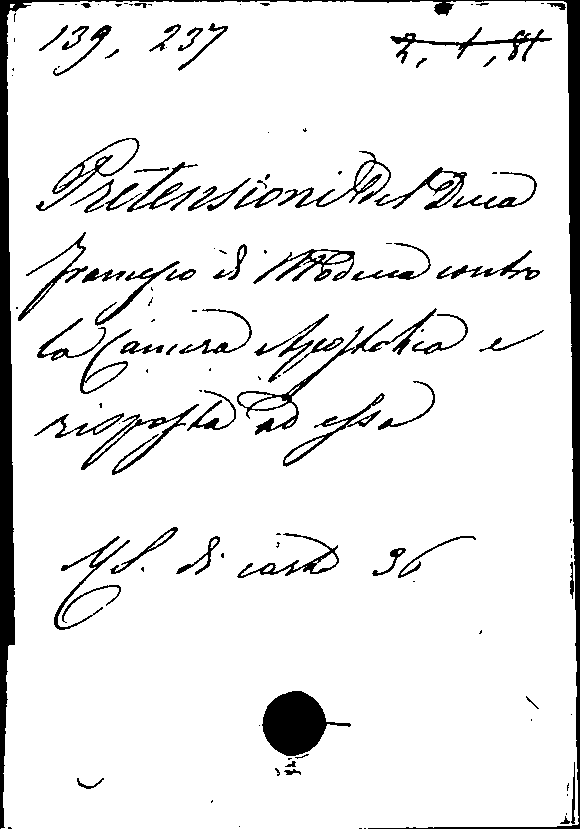 139, 237
2, 1, 81
Pretensioni del Duca
Francesco di Modena contro
la Camera Apostolica e
risposta ad essa
MS. di carte 36